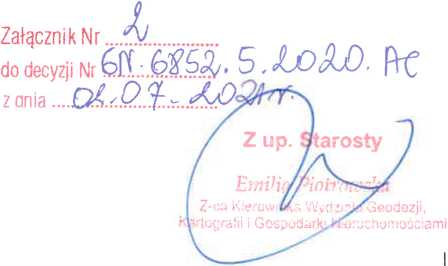 Załącznik Nr 2
do decyzji Nr GN.6852.5.2020.AC
z dnia 02.07.2021r.
Z up. Starosty
Emilia Piotrowska
Z-ca Kierownika Wydziału Geodezji,
Kartografii i Gospodarki Nieruchomościami